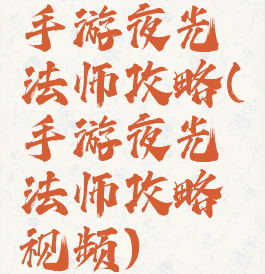 手游夜光
法师攻略(
手游夜光
法师攻略
视频)